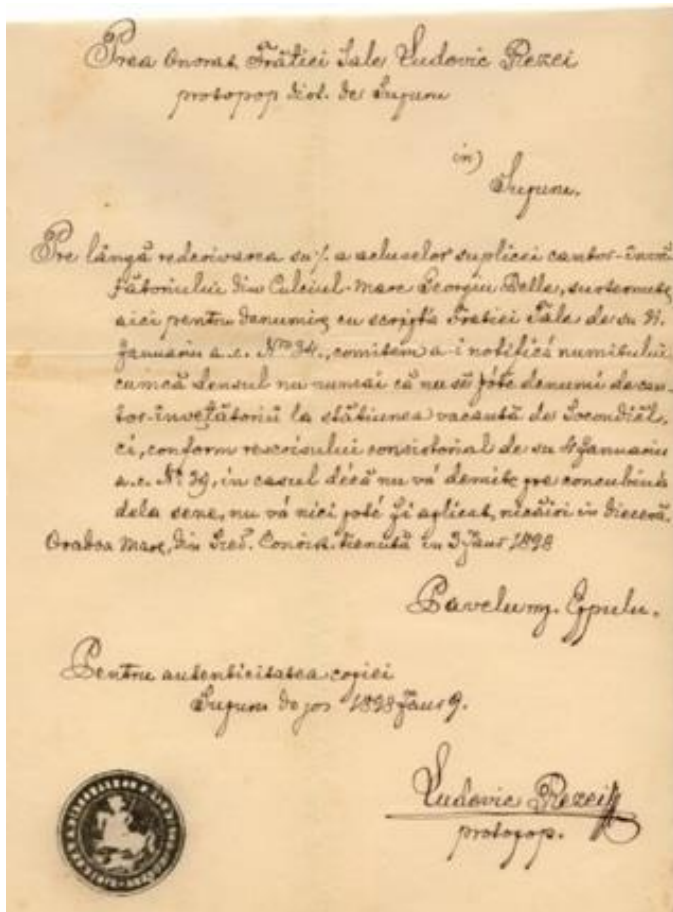 Prea Onorat Frătiei Sale Ludovic Rezei
protopop dist. de Supuru
in)
Supuru.
Pre lângă rederivarea su/. a acluselor suplicei cantor-învă
fătoriului din Culciul-Mare Georgiu Belle, susternute
aici pentru denumire cu scripta Fratiei Tale de su 31.
Januariu a.c. Nro 34., comitem a-i notifică numitului
cumcă densul nu numai că nu se póte denumi de can-
tor-învetătoriu la stătiunea vacantă de
ci, conform rescrisului consistorial de su 4 Januariu
a.c. Nº 39, in casul décă nu vá demite pre concubină
dela sene, nu vá nici poté fi aplicat, nicăiri in dieceră.
Oradea Mare, din Sied. Consist. tienută in 3 Faur 1898
Pavelu m. Eppulu.
Pentru autenticitatea copiei
Supuru de jos 1898 Faur 9.
Ludovic Rezei
protopop.